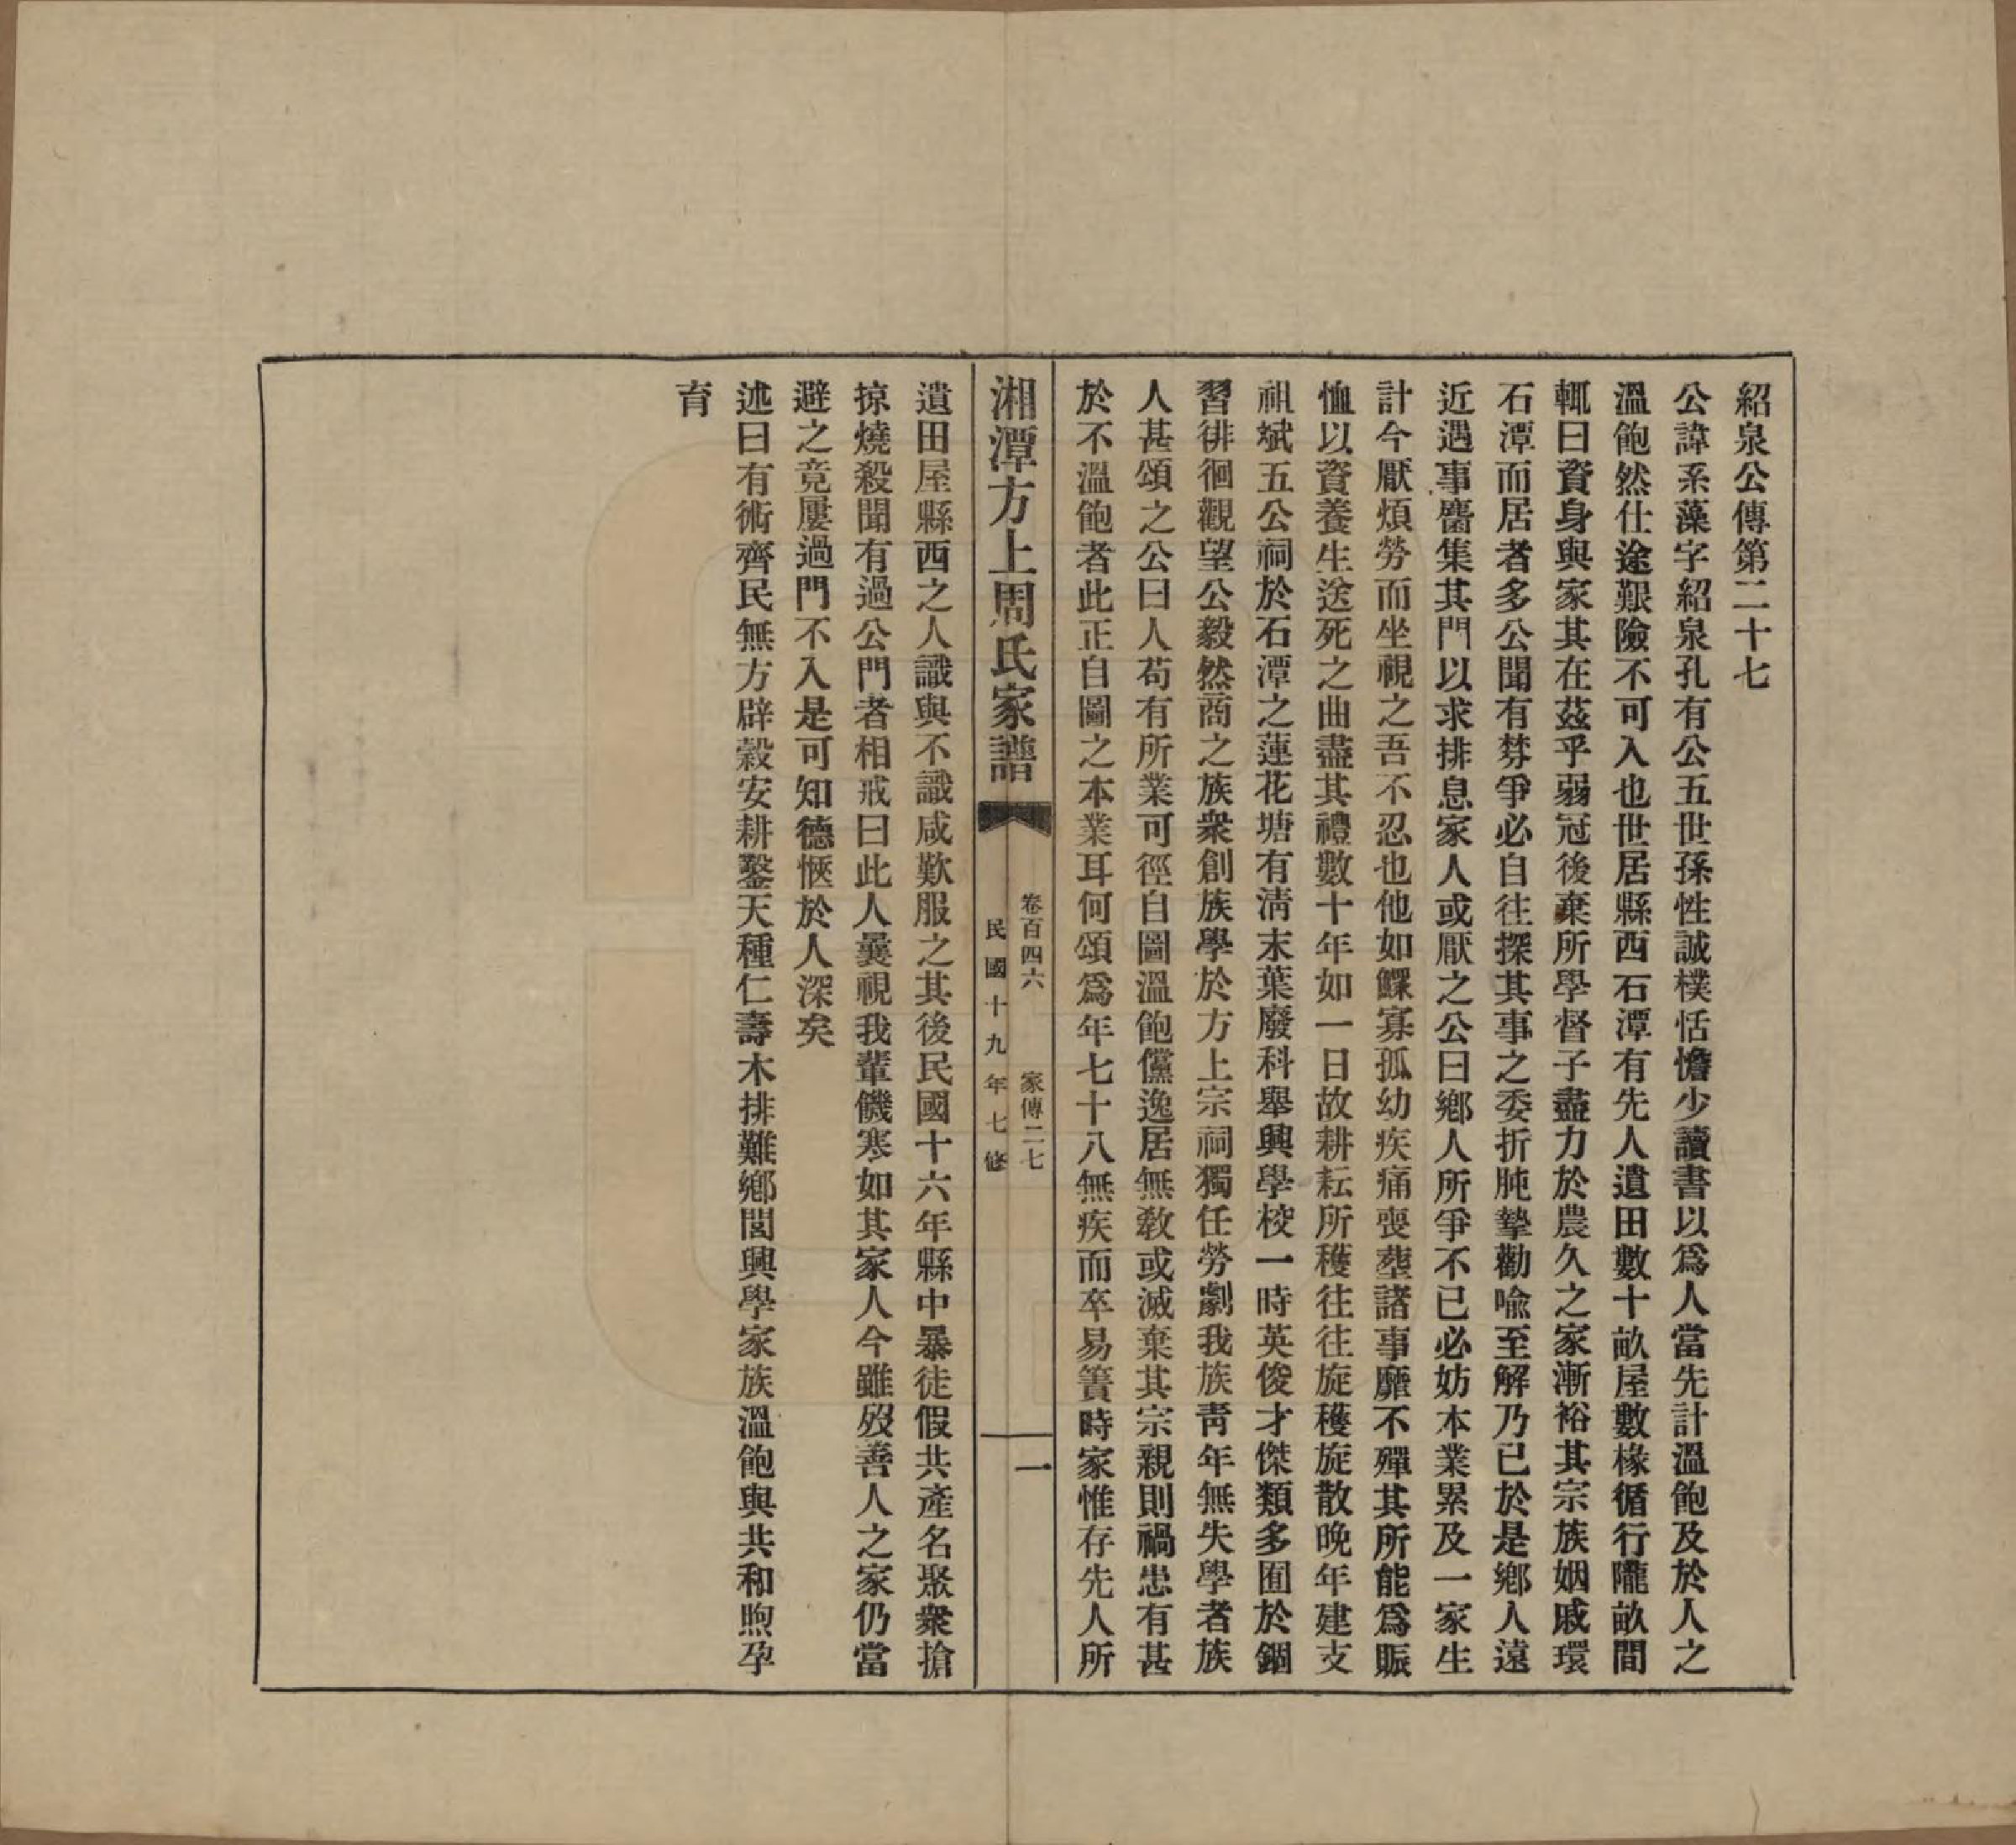 紹泉公傳第二十七
公諱系藻字紹泉孔有公五世孫性誠樸恬憺少讀書以爲人當先計溫飽及於人之
溫飽然仕途艱險不可入也世居縣西石潭有先人遺田數十畝屋數椽循行隴畝間
輒曰資身與家其在茲乎弱冠後棄所學督子盡力於農久之家漸裕其宗族姻戚環
石潭而居者多公聞有棼爭必自往探其事之委折肫摯勸喩至解乃已於是鄉人遠
近遇事麕集其門以求排息家人或厭之公曰鄉人所爭不已必妨本業累及一家生
計今厭煩勞而坐視之吾不忍也他如鰥寡孤幼疾痛喪塟諸事靡不殫其所能爲賑
恤以資養生送死之曲盡其禮數十年如一日故耕耘所穫往往旋穫旋散晚年建支
祖斌五公祠於石潭之蓮花塘有淸末葉廢科舉興學校一時英俊才傑類多囿於錮
習徘徊觀望公毅然商之族衆創族學於方上宗祠獨任勞劇我族靑年無失學者族
人甚頌之公曰人苟有所業可徑自圖溫飽儻逸居無敎或滅棄其宗親則禍患有甚
於不溫飽者此正自圖之本業耳何頌爲年七十八無疾而卒易簀時家惟存先人所
湘潭方上周氏家譜
卷百四六 家傳二七
民國十九年七修
一
遺田屋縣西之人識與不識咸歎服之其後民國十六年縣中暴徒假共產名聚衆搶
掠燒殺聞有過公門者相戒曰此人曩視我輩饑寒如其家人今雖歿善人之家仍當
避之竟屢過門不入是可知德愜於人深矣
述曰有術齊民無方辟穀安耕鑿天種仁壽木排難鄉閭興學家族溫飽與共和煦孕
育